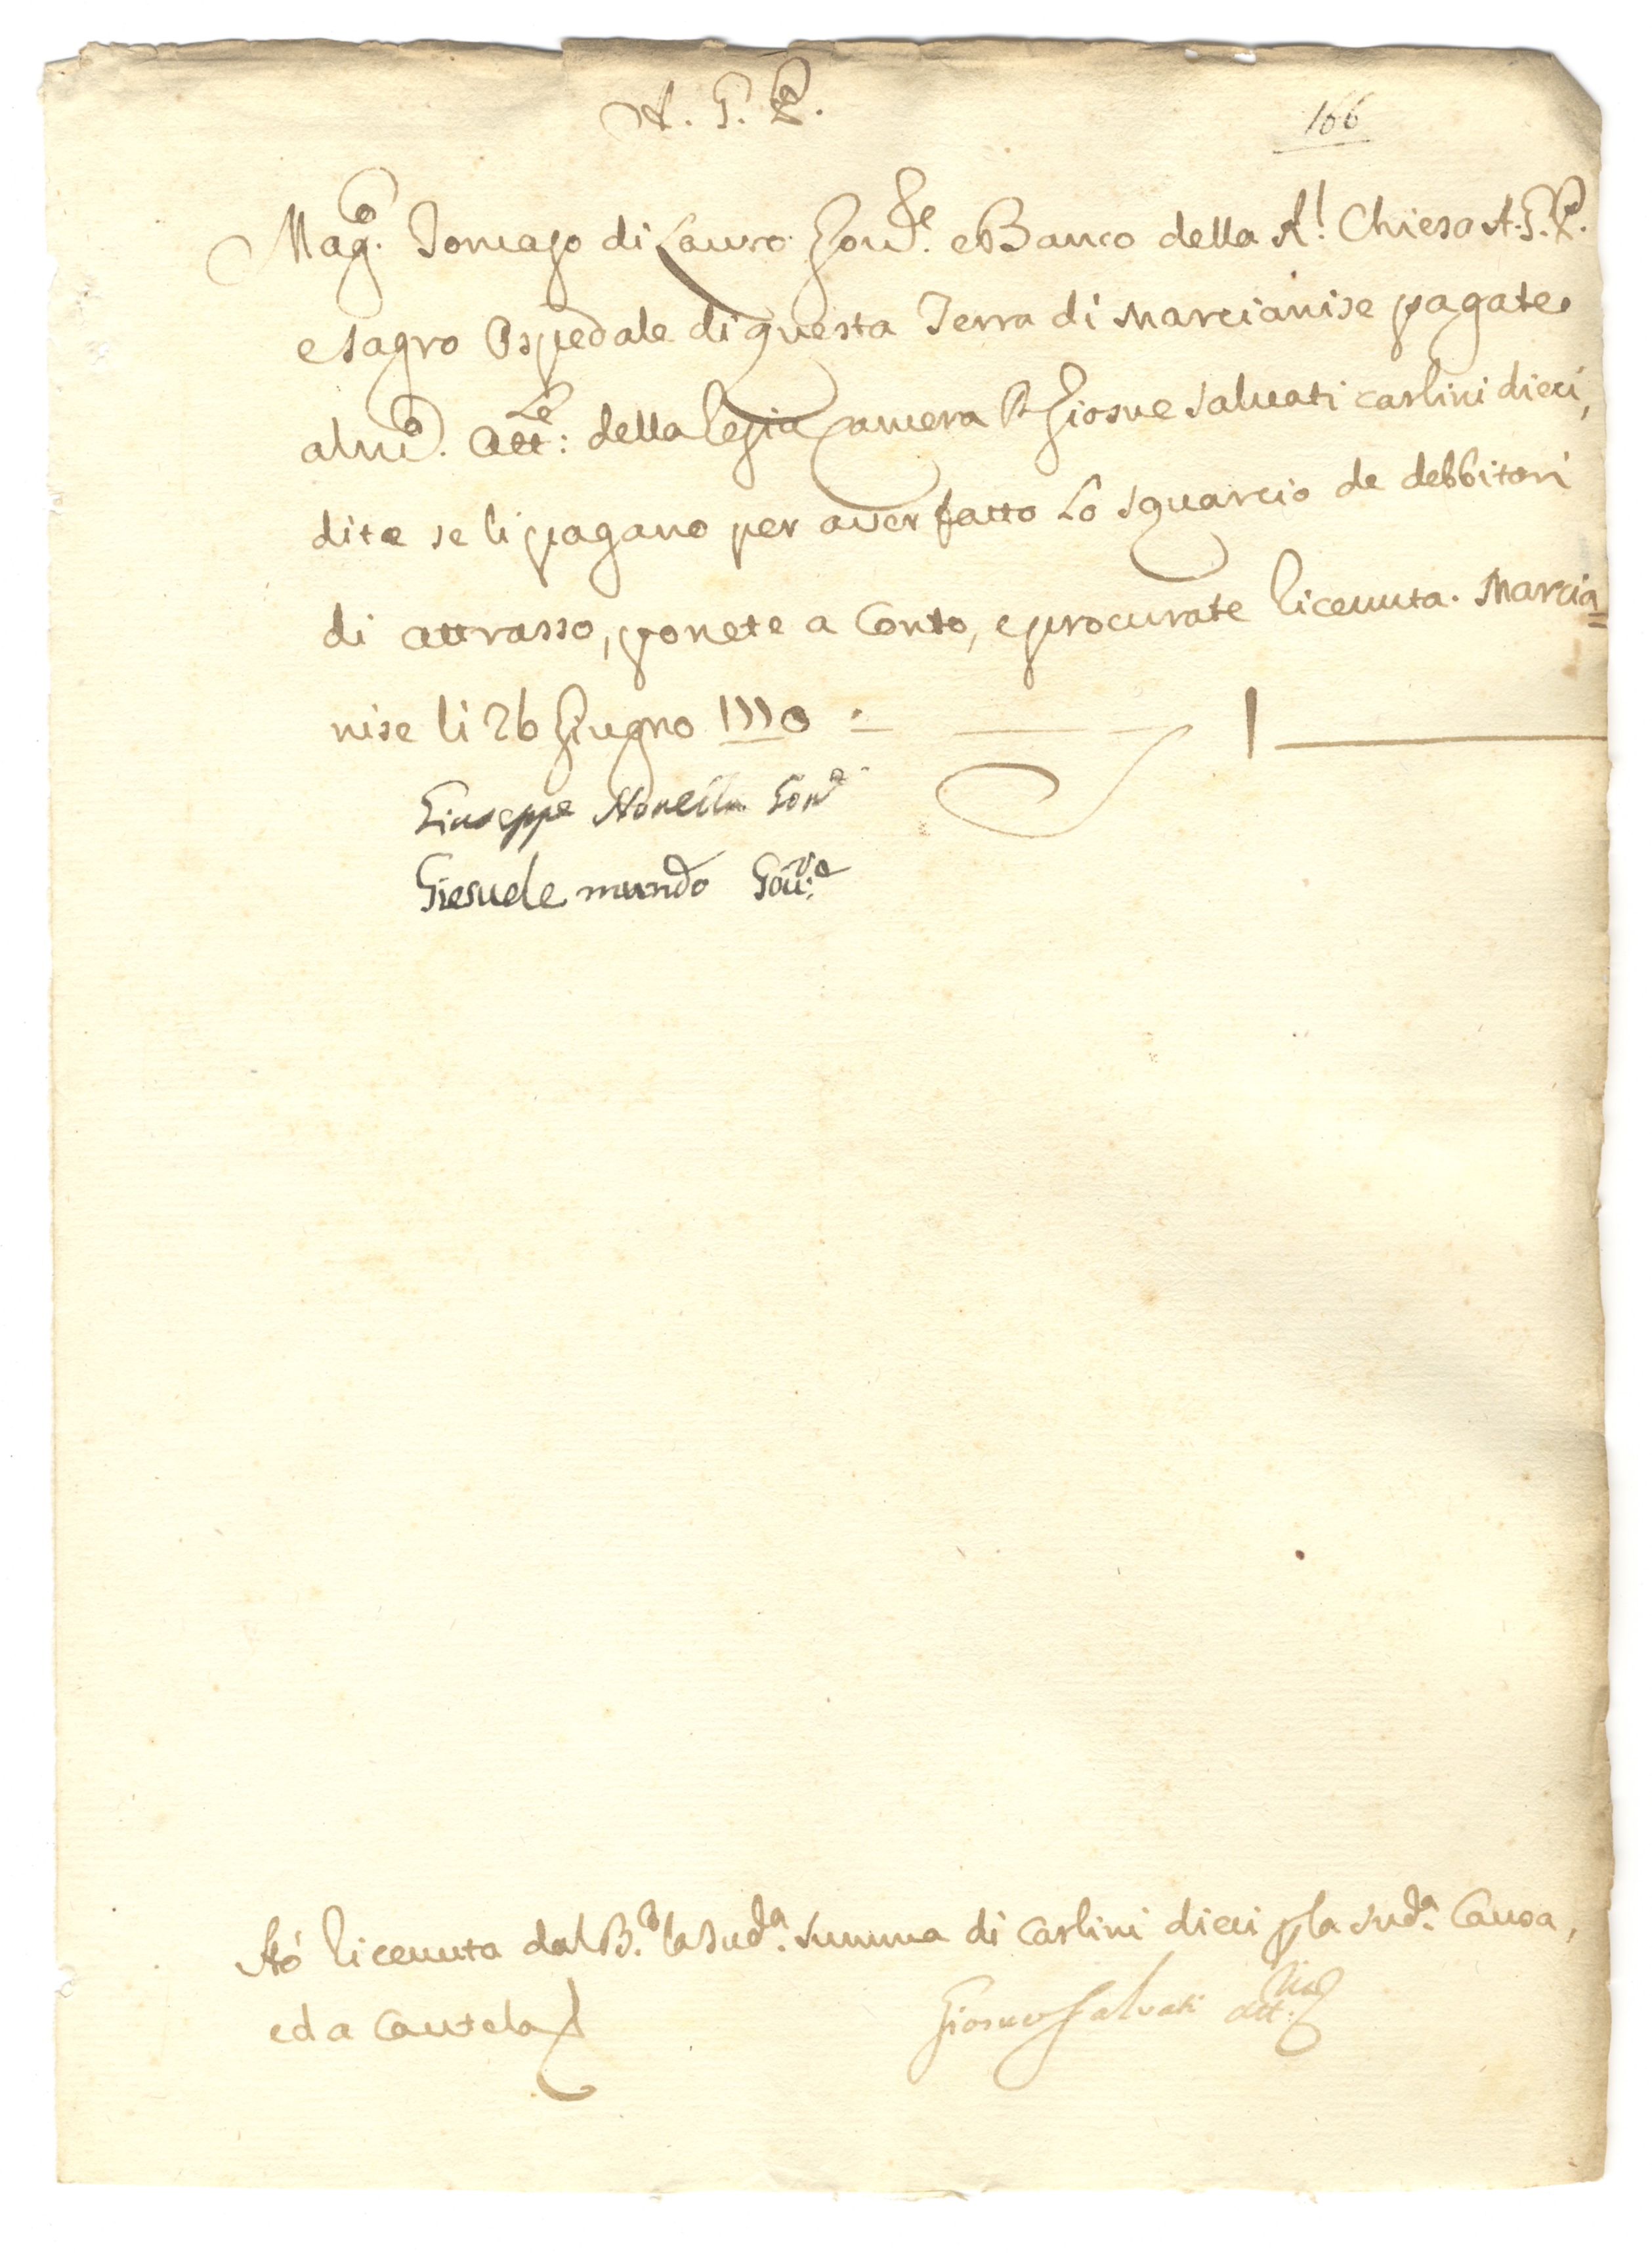 A. G. P.
166
Mag.co Tomaso di Lauro Gov.re e Banco della R.l Chiesa A. G. P.
e sagro Ospedale di questa Terra di Marcianise pagate
al m.co Att.le: della Regia Camera Giosue Salvati carlini dieci,
dite se li pagano per aver fatto Lo squarcio de debbitori
di attrasso, ponete a Conto, e procurate ricevuta. Marcia=
nise li 26 Giugno 1770 =
Giuseppe Novelli Gov.e
Giesuele mundo Gov.re
Hò ricevuta dal B.co la sud.a summa di carlini dieci p la sud.a Causa,
ed a cautela
Giosue Salvati Att.